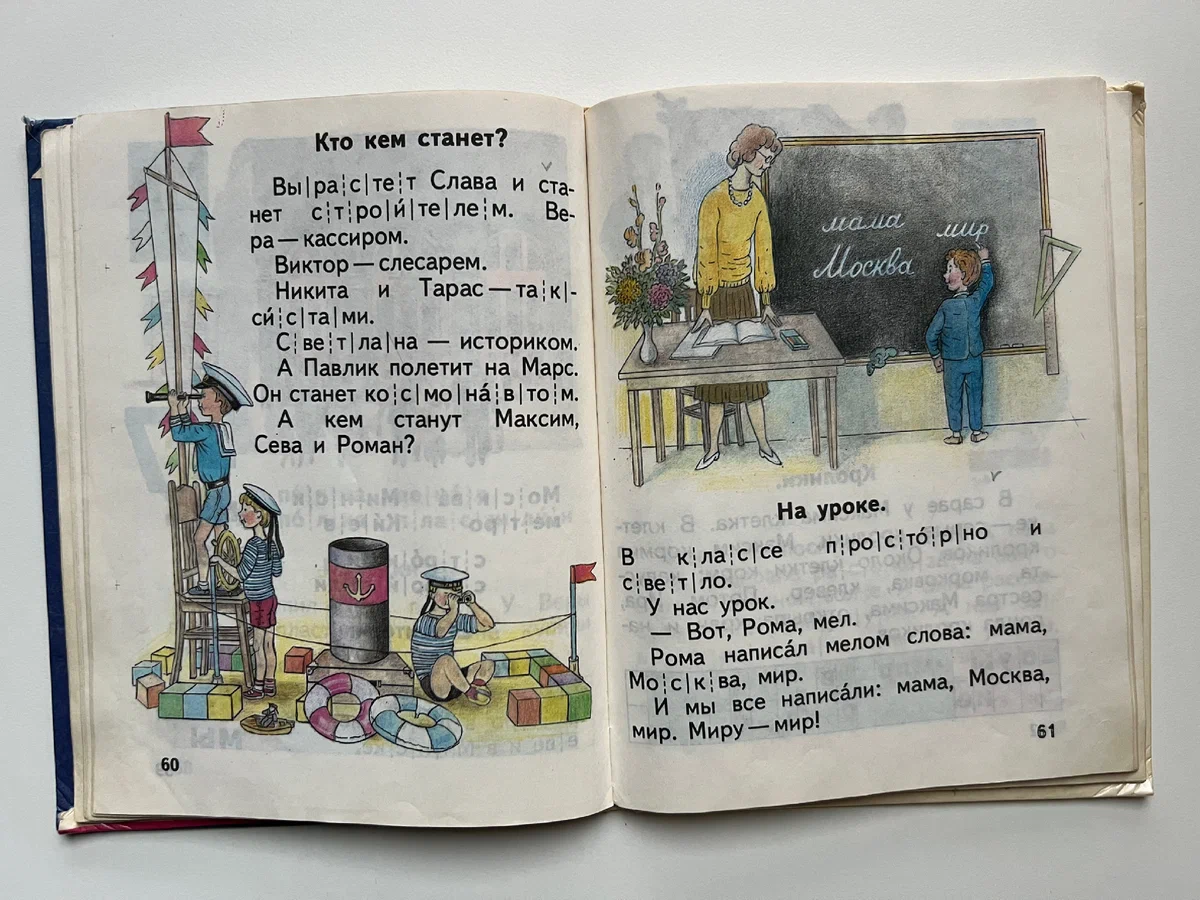 Кто кем станет?
Вы|ра¦с|те¦т Слава и ста-
нет с¦т¦ро|и́|те|ле|м. Ве-
ра — кассиром.
Виктор — слесарем.
Никита и Тарас — та¦к|-
си́¦с|та|ми.
С¦ве¦т|ла|на — историком.
А Павлик полетит на Марс.
Он станет ко|с¦мо|на́|в¦то|м.
А кем станут Максим,
Сева и Роман?
60
мама мир
Москва
На уроке.
В к¦ла|с|се п¦ро|с|то́|р|но и
с¦ве|т|ло.
У нас урок.
— Вот, Рома, мел.
Рома написа́л мелом слова: мама,
Мо|с¦к¦ва, мир.
И мы все написа́ли: мама, Москва,
мир. Миру — мир!
61